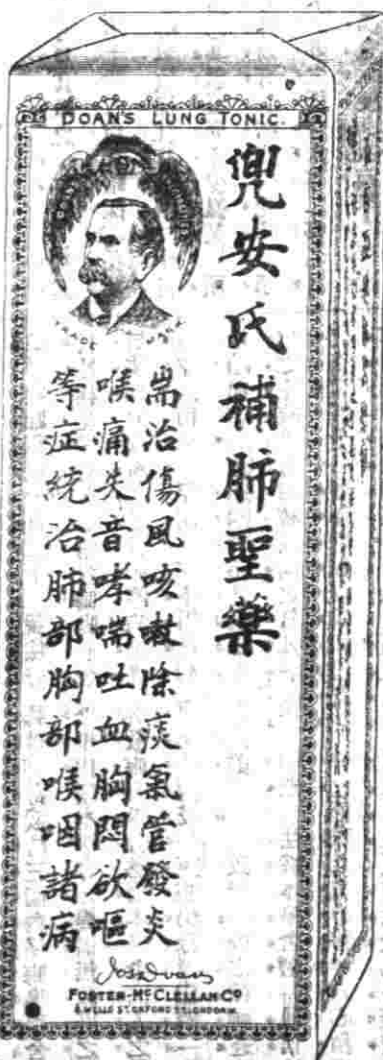 DOAN'S LUNG TONIC.
TRADE MARK
兜安氏補肺聖藥
耑治傷風咳嗽除痰氣管發炎
喉痛失音哮喘吐血胸悶欲嘔
等症統治肺部胸部喉咽諸病
Jas Doan
FOSTER-McCLELLAN Co
8, WELLS ST. OXFORD ST. LONDON. W.